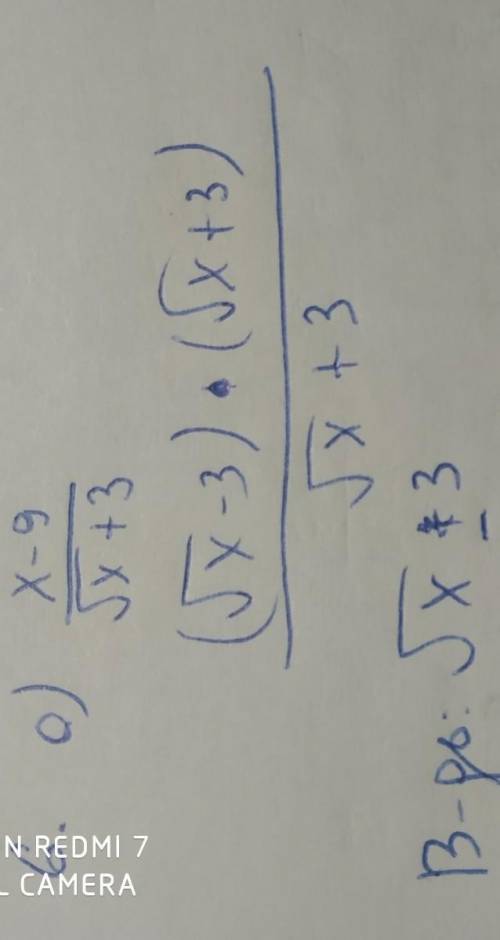 6. а) x-9 / √x+3
(√x-3)·(√x+3) / √x+3
В-дь: √x - 3
N REDMI 7
L CAMERA